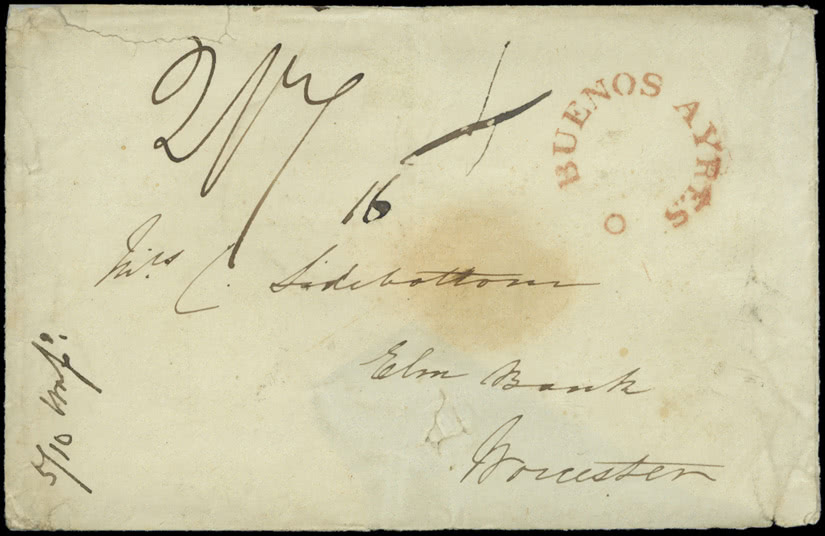 2/7
BUENOS AYRES
16
Mrs C. Sidebottom
Elm Bank
Worcester
5/10